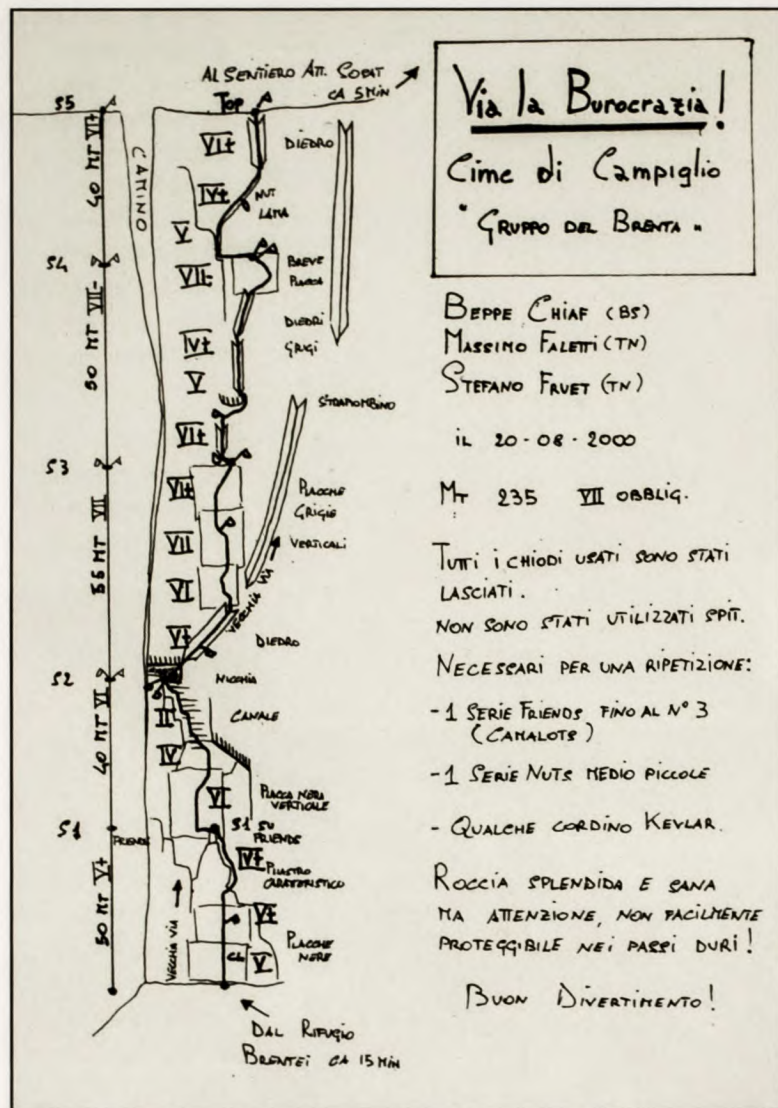 AL SENTIERO ATT. SOSAT
CA 5 MIN
S5
TOP
40 MT VI+
CAMINO
VI+
DIEDRO
IV+
NUT
LAMA
V
S4
VII-
BREVE
PLACCA
50 MT VII-
DIEDRI
GRIGI
IV+
V
STRAPIOMBINO
VI+
S3
VI+
PLACCHE
GRIGIE
VERTICALI
55 MT VII
VII
VI
VECCHIA VIA
V+
DIEDRO
S2
NICCHIA
CANALE
40 MT VI
II
IV
VI
PLACCA NERA
VERTICALE
S1
FRIENDS
S1 SU
FRIENDS
V+
PILASTRO
CARATTERISTICO
50 MT V+
VECCHIA VIA
V+
PLACCHE
NERE
CL
V
DAL RIFUGIO
BRENTEI CA 15 MIN
Via la Burocrazia!
Cime di Campiglio
"GRUPPO DEL BRENTA"
BEPPE CHIAF (BS)
MASSIMO FALETTI (TN)
STEFANO FRUET (TN)
IL 20-08-2000
MT 235 VII OBBLIG.
TUTTI I CHIODI USATI SONO STATI
LASCIATI.
NON SONO STATI UTILIZZATI SPIT.
NECESSARI PER UNA RIPETIZIONE:
- 1 SERIE FRIENDS FINO AL N° 3
(CAMALOTS)
- 1 SERIE NUTS MEDIO PICCOLE
- QUALCHE CORDINO KEVLAR.
ROCCIA SPLENDIDA E SANA
MA ATTENZIONE, NON FACILMENTE
PROTEGGIBILE NEI PASSI DURI!
BUON DIVERTIMENTO!